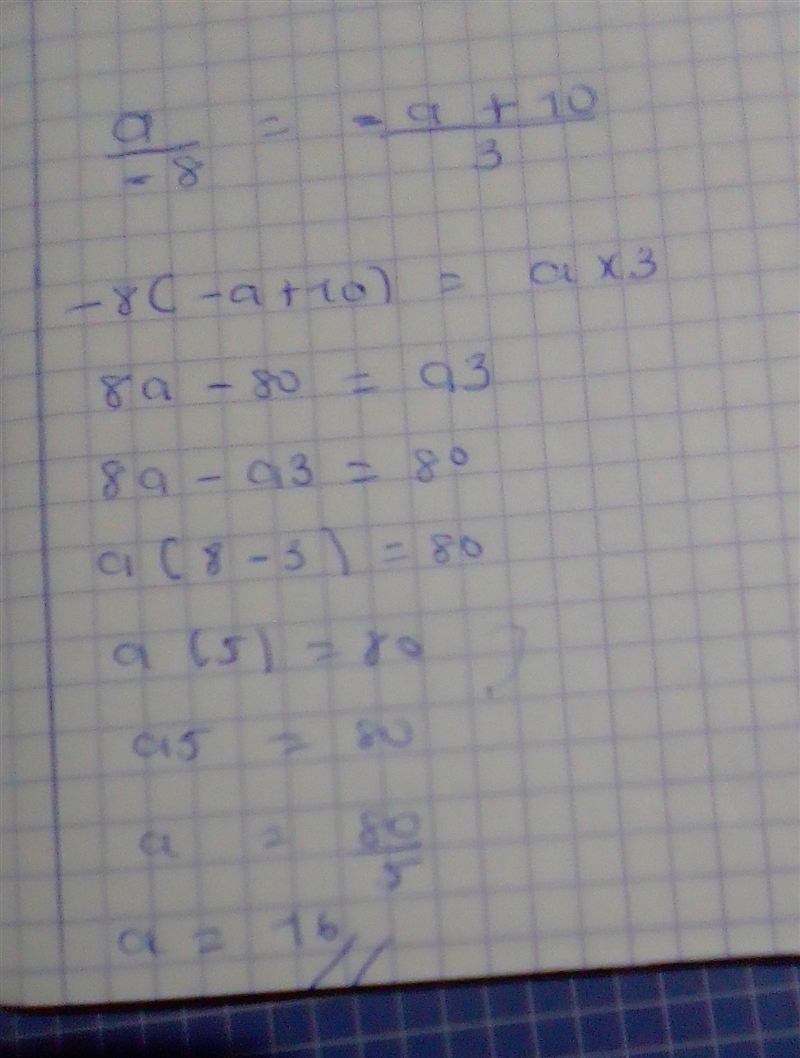 a/-8 = -a + 10/3
-8(-a+10) = a×3
8a - 80 = a3
8a - a3 = 80
a(8-3) = 80
a(5) = 80
a5 = 80
a = 80/5
a = 16//